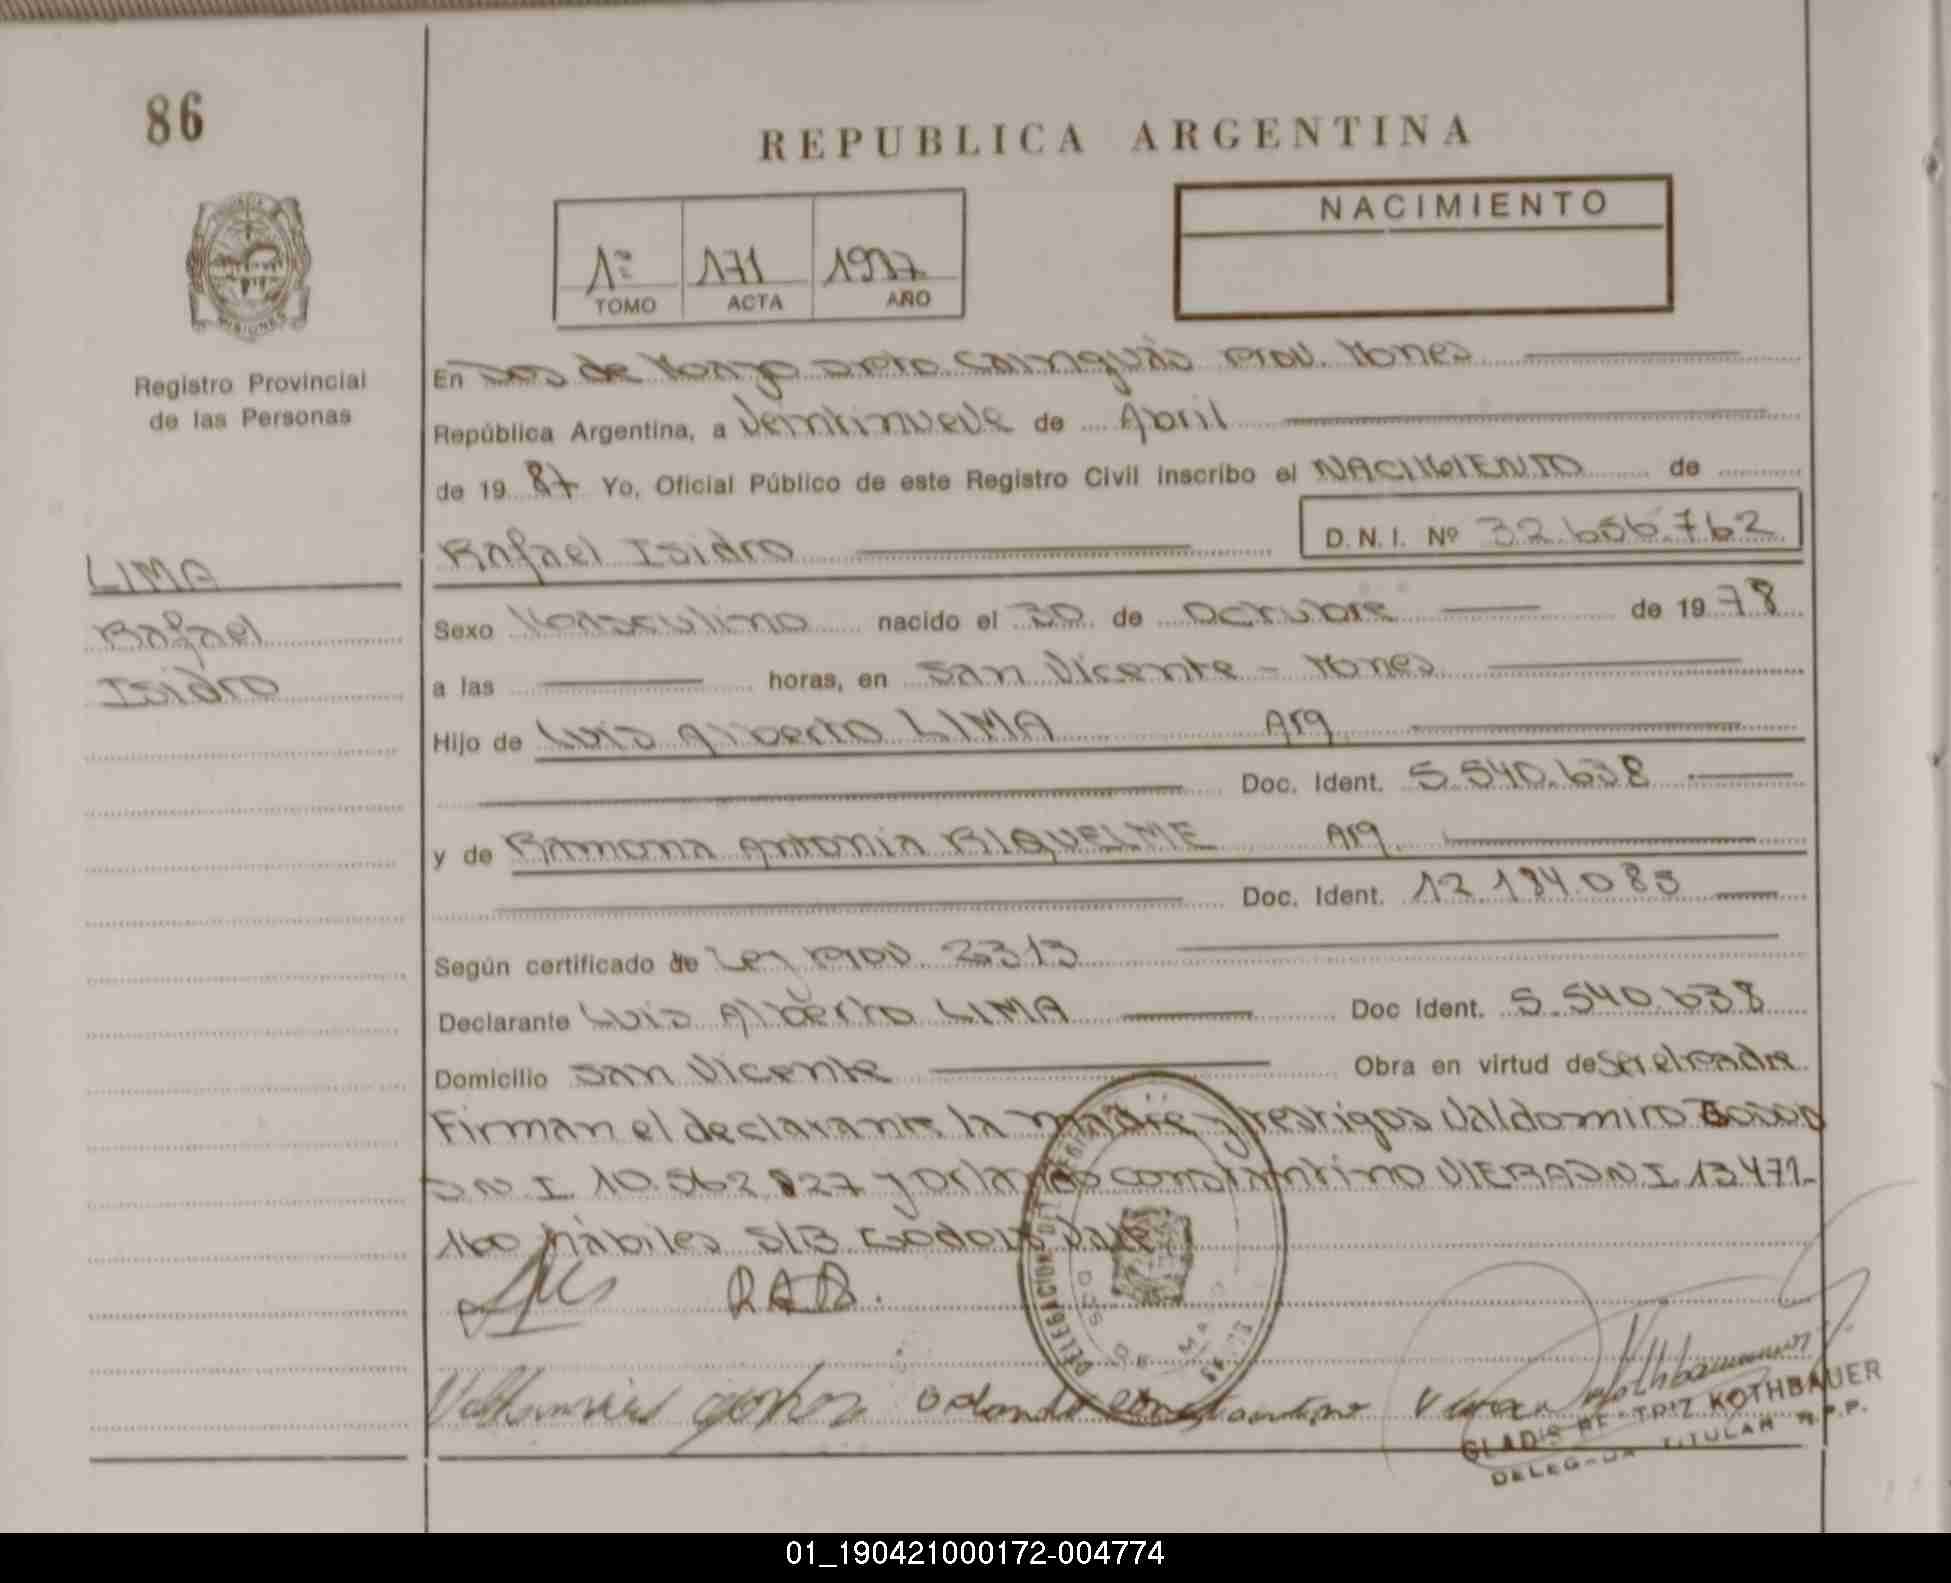 86
REPUBLICA ARGENTINA
NACIMIENTO
1º 171 1987
TOMO ACTA AÑO
Registro Provincial
de las Personas
En Dos de Mayo Dpto Cainguás Prov. Mones
República Argentina, a Veintinueve de Abril
de 1987 Yo, Oficial Público de este Registro Civil inscribo el NACIMIENTO de
Rafael Isidro D.N.I. Nº 32.656.762
LIMA
Rafael
Isidro
Sexo Masculino nacido el 30 de Octubre de 1978
a las horas, en San Vicente - Mones
Hijo de Luis Alberto LIMA Arg.
Doc. Ident. 5.540.638
y de Ramona Antonia RIQUELME Arg.
Doc. Ident. 12.184.085
Según certificado de Ley Prov. 2313
Declarante Luis Alberto LIMA Doc Ident. 5.540.638
Domicilio San Vicente Obra en virtud de Ser el Padre.
Firman el declarante la madre y testigos Valdomiro
D.N.I 10.562.827 y Orlando Constantino VIERA DNI 13.471-
160 hábiles S/B Godoy Vale
R.A.R.
Orlando Constantino Viera
DELEGACION DEL REGISTRO
DOS DE MAYO
GLADIS BEATRIZ KOTHBAUER
DELEGADA TITULAR R.P.P.
01_190421000172-004774